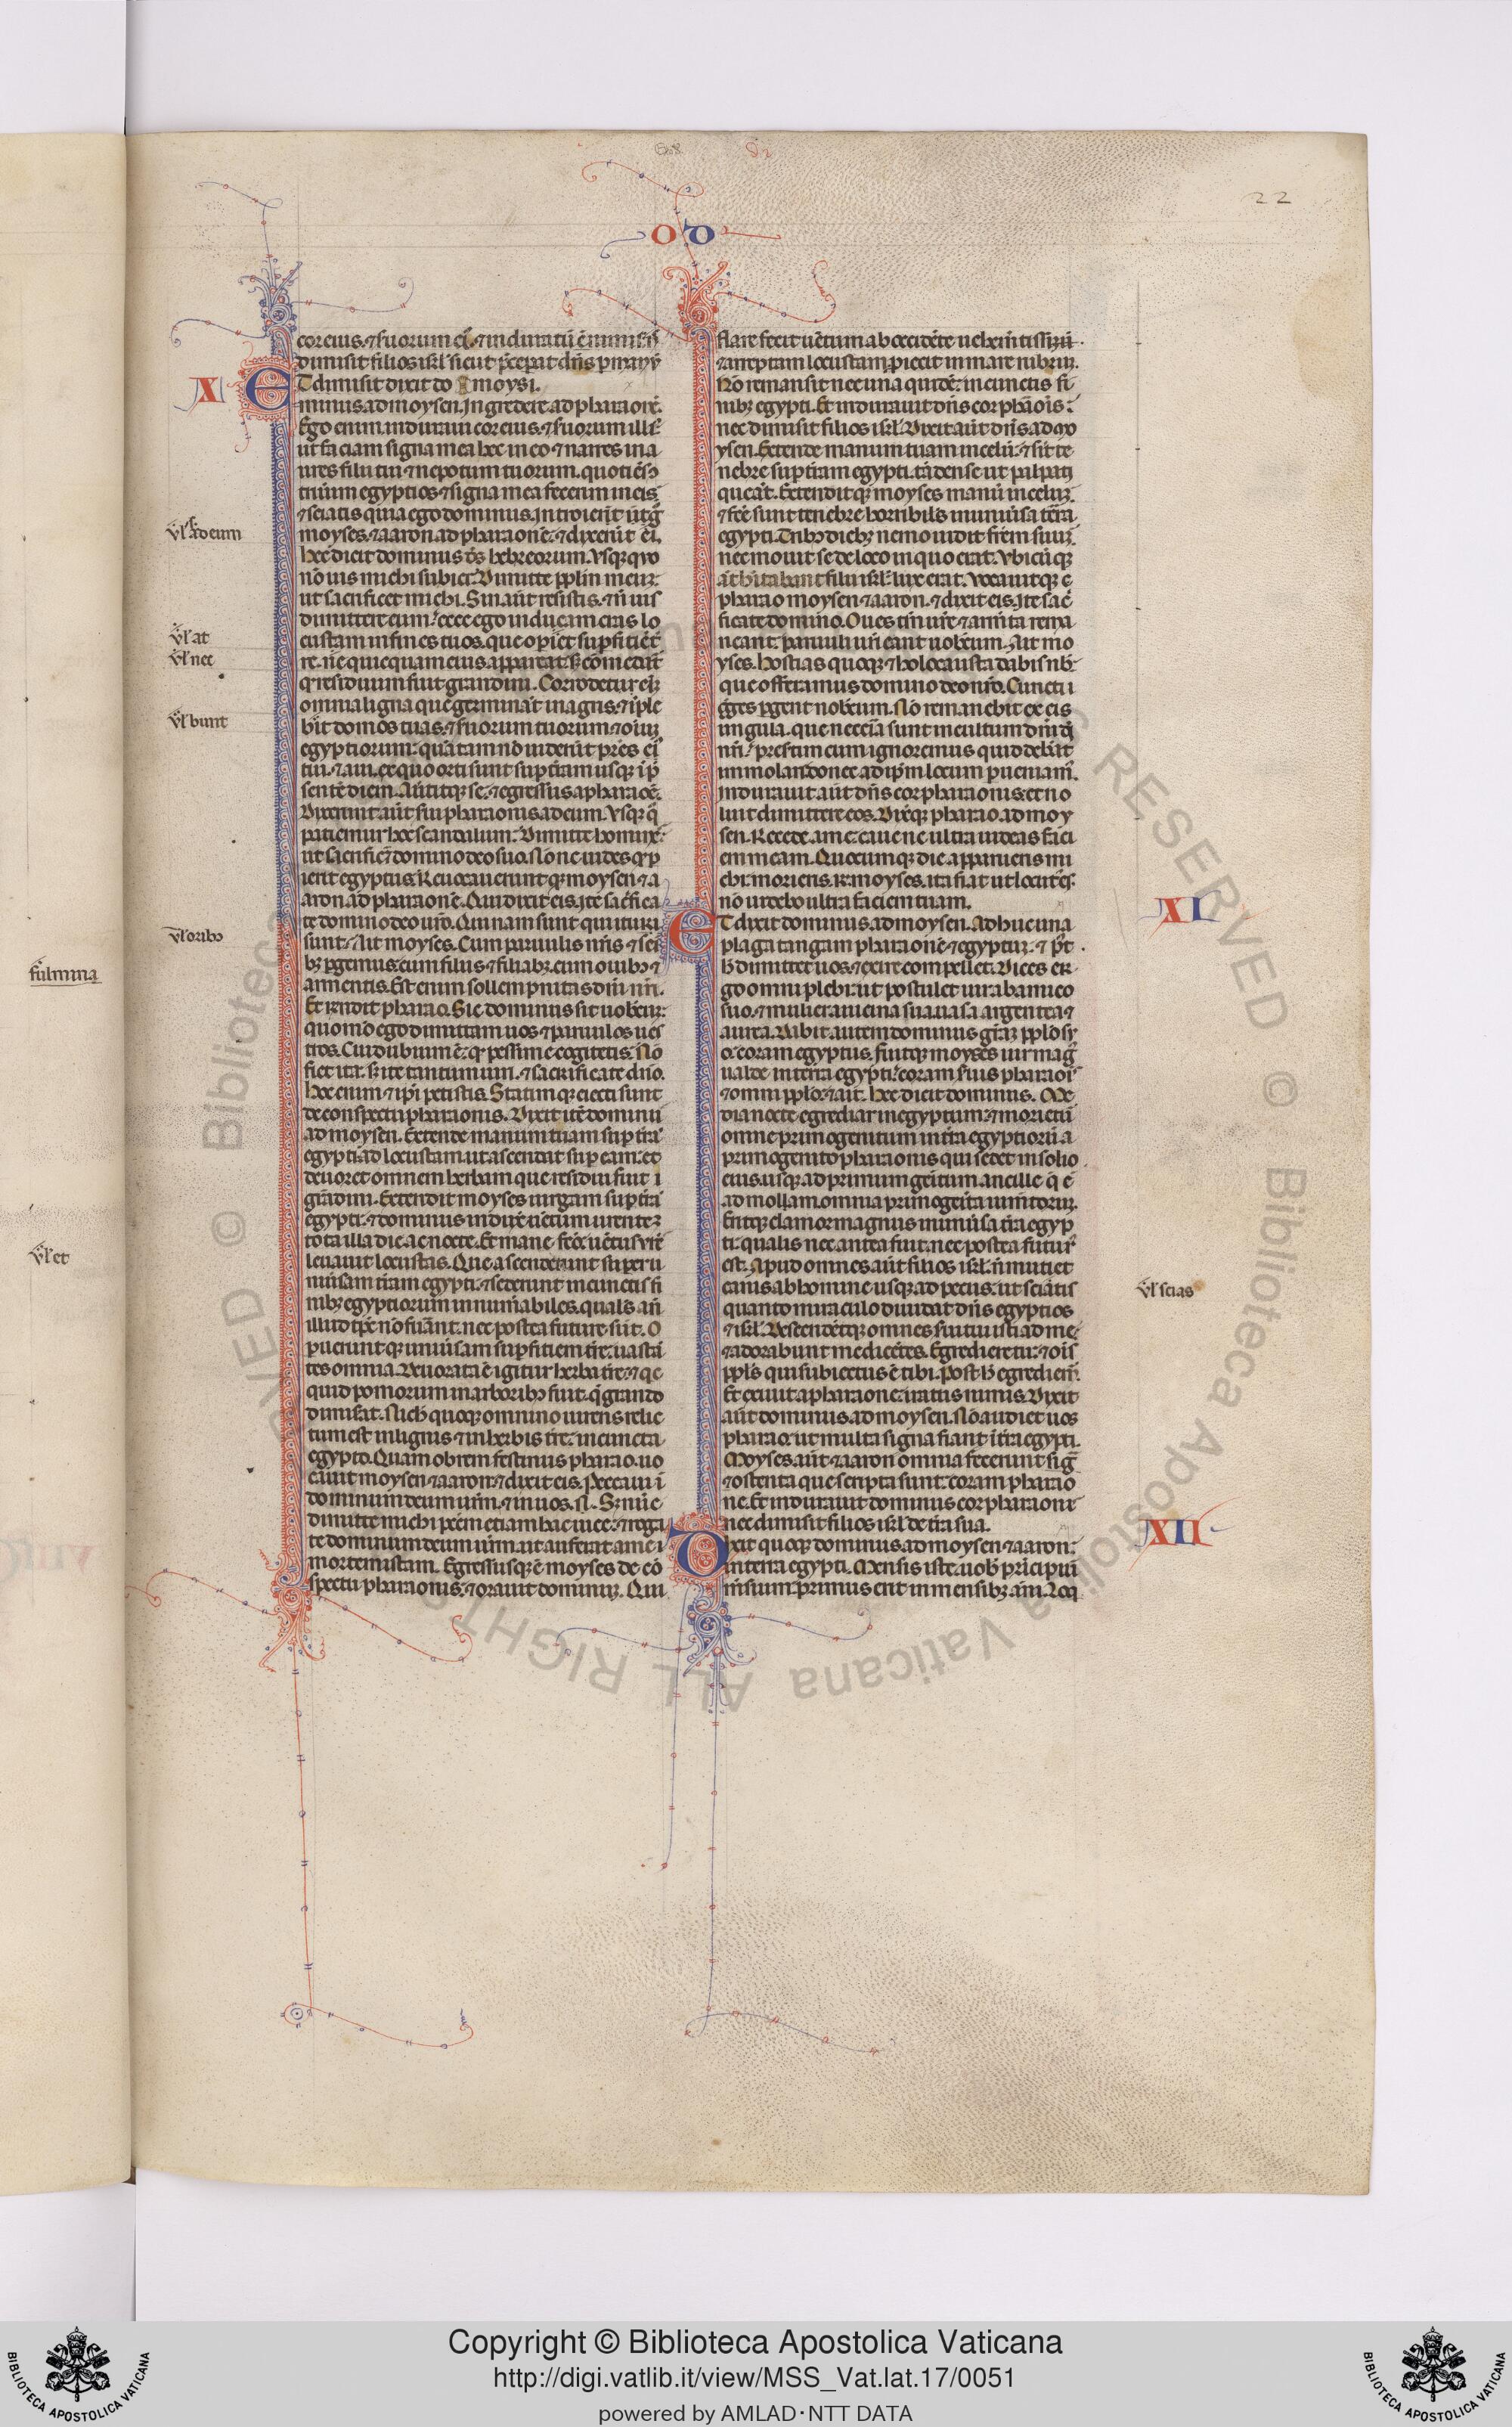 22
O D
cor eius ⁊ suorum ei᷑ ⁊ induratū ē nimis n̄
dimisit filios isr̄l sicut p̄ceperat dn̄s p̱ manū
X
ET dimisit dixit do moysi.
minus ad moysen. Ingredere ad pharaonē.
Ego enim induraui cor eius ⁊ suorum illi᷑
ut faciam signa mea hec in eo ⁊ narres in a
ures filii tui ⁊ nepotum tuorum. quotiēs ↄ
triuerim egyptios ⁊ signa mea fecerim in eis
⁊ sciatis quia ego dominus. Introierūt ūtg̊
moyses ⁊ aaron ad pharaonē ⁊ dixerūt ei.
Hec dicit dominus d̄s hebreorum. Vsq; quo
nō uis michi subici. Dimitte pplm̄ meuꝫ
ut sacrificet michi. Sin aūt resistis ⁊ n̄ uis
dimittere eum. ecce ego inducam cras lo
custam in fines tuos. que op̱iet sup̱ficiē t̄
re. ne quicquam eius appareat. sꝫ comedat̄
qđ residuum fuit grandini. Corrodet ei᷑
omnia ligna que germinat̄ in agris. ⁊ īple
būt domos tuas. ⁊ suorum tuorum ⁊ oīuꝫ
egyptiorum. quātam nō uiderūt patres
tui ⁊ aui. ex quo orti sunt sup̱ t̄ram usq; ī p̄
sentē diem. Auertitq; se ⁊ egressus a pharaoē.
Dixerunt aūt sui pharaonis ad eum. Vsq; q̊
patiemur hec scandalum. Dimitte homines
ut sacrificēt domino deo suo. Nonne uides qđ p̱
ierit egyptus. Reuocauerunt q; moysen ⁊ a
aron ad pharaonē. Qui dixit eis. Ite sacrifica
te domino deo ur̄o. Quinam sunt qui ituri
sunt. Ait moyses. Cum paruulis nr̄is ⁊ seni
bꝫ p̱gemus. cum filiis ⁊ filiabꝫ. cum ouibꝫ ⁊
armentis. Est enim sollempnitas dn̄i nr̄i.
Et r̄ndit pharao. Sic dominus sit uobcum.
quomō ego dimittam uos ⁊ paruulos ues
tros. Cui dubium ē. qđ pessime cogitetis. Nō
fiet ita. sꝫ ite tantum uiri. ⁊ sacrificate dn̄o.
Hoc enim ⁊ ipi petistis. Statimq; eiecti sunt
de conspectu pharaonis. Dixit aūt dominus
ad moysen. Extende manum tuam sup̱ t̄rā
egypti ad locustam. ut ascendat sup̱ eam. et
deuoret omnem herbam que residua fuit
grādini. Extendit moyses uirgam sup̱ t̄rā
egypti. ⁊ dominus induxit uētum urenteꝫ
tota illa die ac nocte. Et mane facto uētus urēs
leuauit locustas. Que ascenderunt super u
niuersam t̄ram egypti. ⁊ sederunt in cunctis fi
nibꝫ egyptiorum innumabiles. quales añ
illud tp̄s nō fuerāt. nec postea future sūt. O
p̱ueruntq; uniūsam sup̱ficiem t̄re. uastā
tes omnia. Deuorata ē igitur herba t̄re. ⁊ qc
quid pomorum in arboribꝫ fuit. q̄ grando
dimisat̄. Nichil quoq; omnino uirens relic
tum est in lignis ⁊ in herbis t̄re. in cuncta
egypto. Quam ob rem festinus pharao uo
cauit moysen ⁊ aaron. ⁊ dixit eis. Peccaui ī
dominum deum ur̄m. ⁊ in uos. Sꝫ nūc
dimitte michi pctm̄ etiam hac uice. ⁊ roga
te dominum deum ur̄m. ut auferat a me
mortem istam. Egressusq; ē moyses de cō
spectu pharaonis. ⁊ orauit dominuꝫ. Qui
ul᷑ ad eum
ul᷑ at
ul᷑ nec
ul᷑ bunt
ul᷑ oribꝫ
fulmina
ul᷑ et
flare fecit uētum ab occidēte uehemētissimū.
⁊ arreptam locustam p̱iecit in mare rubruꝫ.
Nō remansit nec una quidē. in cunctis fi
nibꝫ egypti. Et indurauit dn̄s cor pharaōis.
nec dimisit filios isr̄l. Dixit aūt dn̄s ad mo
ysen. Extende manum tuam in celū. ⁊ sit te
nebre sup̱ t̄ram egypti. tā dense ut palpari
queāt. Extenditq; moyses manū in celuꝫ.
⁊ fc̄e sunt tenebre horribiles in uniūsa t̄ra
egypti. Tribꝫ diebꝫ nemo uidit fr̄em suuꝫ.
nec mouit se de loco in quo erat. Vbicūq;
aūt habitabant filii isr̄l. lux erat. Vocauitq;
pharao moysen ⁊ aaron. ⁊ dixit eis. Ite sac̄
ficate domino. Oues tm̄ ur̄e ⁊ armēta rema
neant. paruuli ur̄i eant uobcum. Ait mo
yses. Hostias quoq; ⁊ holocausta dabis nob̄
que offeramus domino deo nr̄o. Cuncti
greges p̱gent nobcum. Nō remanebit ex eis
ungula. que nec̄cia sunt in cultum dn̄i di
nr̄i. presertim cum ignoremus quid debeat
immolari donec ad ip̄m locum p̱ueniam᷑.
Indurauit aūt dn̄s cor pharaonis. et no
luit dimittere eos. Dixitq; pharao ad moy
sen. Recede a me. caue ne ultra uideas faci
em meam. Quocumq; die apparueris mi
chi. morieris. R. moyses. ita fiat ut locut᷑ es.
nō uidebo ultra faciem tuam.
XI
ET dixit dominus ad moysen. Adhuc una
plaga tangam pharaonē ⁊ egyptuꝫ. ⁊ p̄t
h̄ dimittet uos. ⁊ exire compellet. Dices er
go omni plebi. ut postulet uir ab amico
suo. ⁊ mulier a uicina sua. uasa argentea ⁊
aurea. Dabit autem dominus gr̄am pplo su
o. coram egyptiis. fuitq; moyses uir mag᷑
ualde in terra egypti. coram suis pharaoīs
⁊ omni pplo. ⁊ ait. Hec dicit dominus. Me
dia nocte egrediar in egyptum. ⁊ morietur
omne primogenitum in t̄ra egyptiorū. a
primogenito pharaonis qui sedet in solio
eius. usq; ad primum genitum ancille q̄ ē
ad molam. omnia primogenita iumētoruꝫ.
Eritq; clamor magnus in uniūsa t̄ra egyp
ti. qualis nec antea fuit. nec postea futur᷑
est. Apud omnes aūt filios isr̄l. n̄ mutiet
canis ab homine usq; ad pecus. ut sciatis
quanto miraculo diuidat dn̄s egyptios
⁊ isr̄l. Descendentq; omnes serui tui isti ad me.
⁊ adorabunt me dicētes. Egredere tu. ⁊ oīs
ppl̄s qui subiectus ē tibi. Post h̄ egrediem᷑.
Et exiuit a pharaone. iratus nimis. Dixit
aūt dominus ad moysen. Nō audiet uos
pharao. ut multa signa fiant ī t̄ra egypti.
Moyses aūt ⁊ aaron omnia fecerunt sig̃
⁊ ostenta que scripta sunt. coram pharao
ne. Et indurauit dominus cor pharaonis
nec dimisit filios isr̄l de t̄ra sua.
XII
Dixit quoq; dominus ad moysen ⁊ aaron.
in terra egypti. Mensis iste. uob̄ prīcipiū
mēsium. primus erit in mensibꝫ anni. Loq
ul᷑ scias
Copyright © Biblioteca Apostolica Vaticana
http://digi.vatlib.it/view/MSS_Vat.lat.17/0051
powered by AMLAD·NTT DATA
BIBLIOTECA APOSTOLICA VATICANA
BIBLIOTECA APOSTOLICA VATICANA